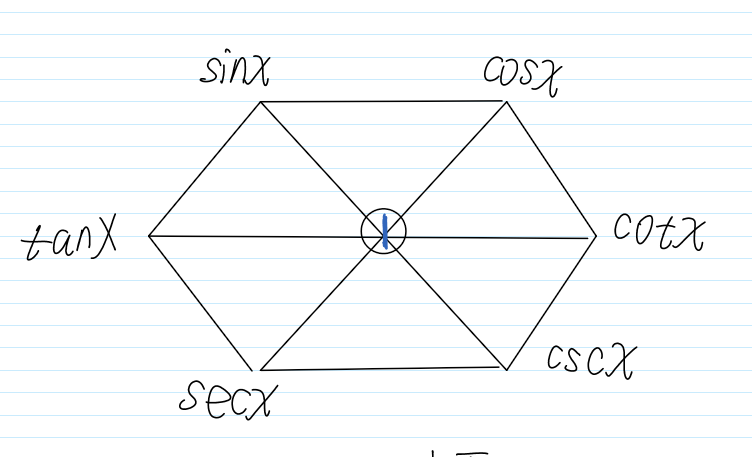 sinx cosx
tanx 1 cotx
cscx
secx